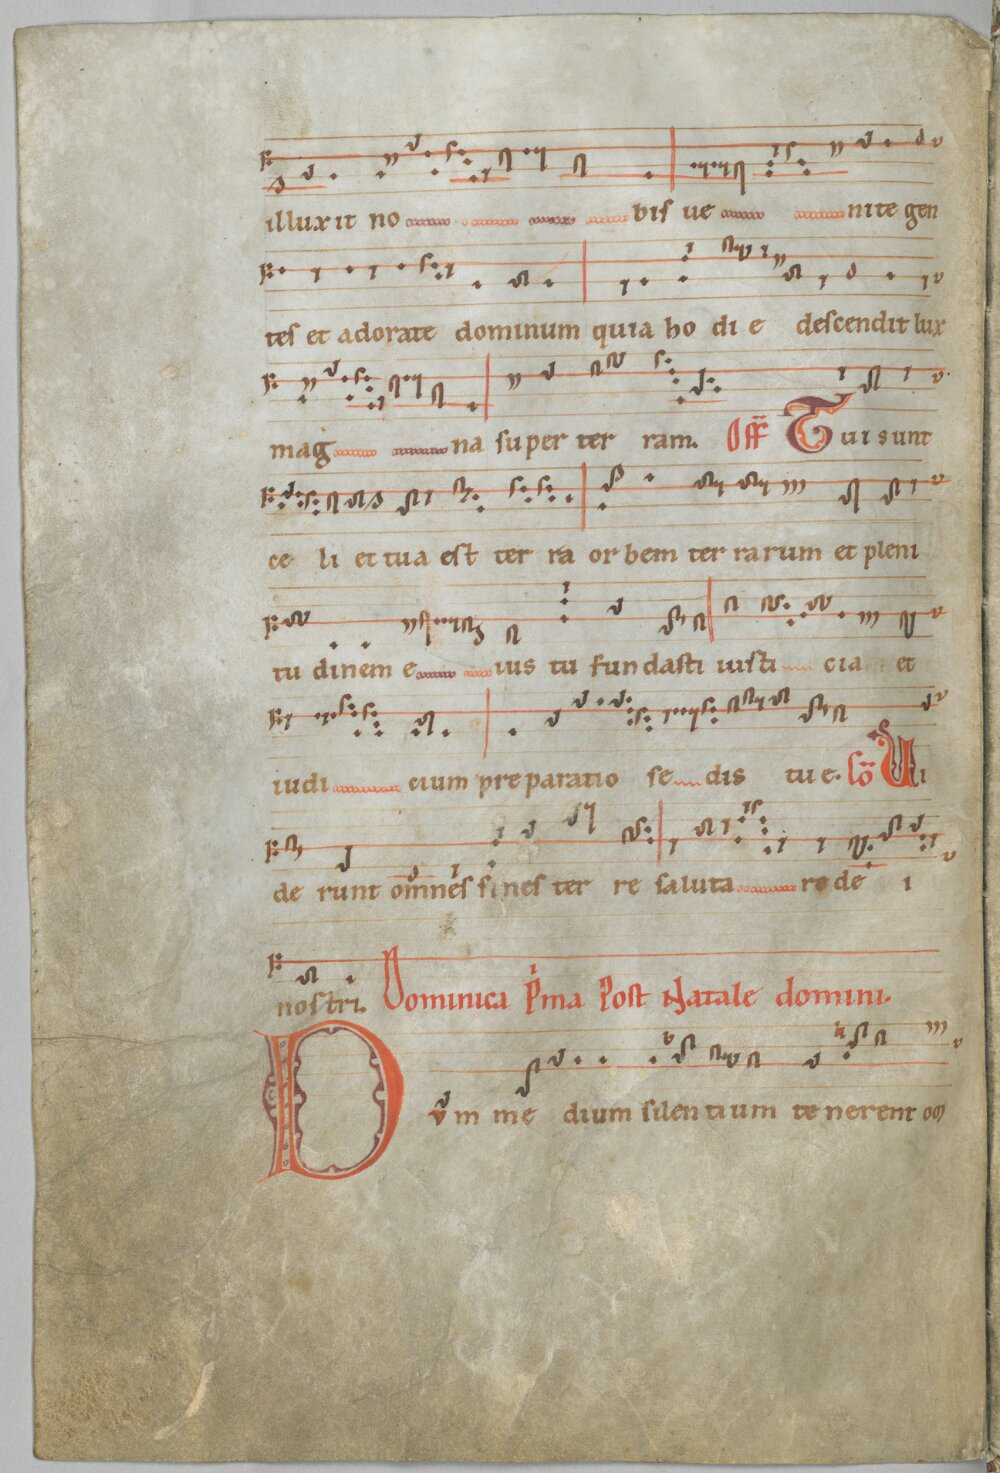 illuxit no bis ue nite gen
tes et adorate dominum quia ho di e descendit lux
mag na super ter ram. Off Tui sunt
ce li et tua est ter ra orbem ter rarum et pleni
tu dinem e ius tu fundasti iusti cia et
iudi cium preparatio se dis tue. Co Ui
de runt omnes fines ter re saluta re de i
nostri. Dominica Pma Post Natale domini.
Dvm me dium silentium tenerent om